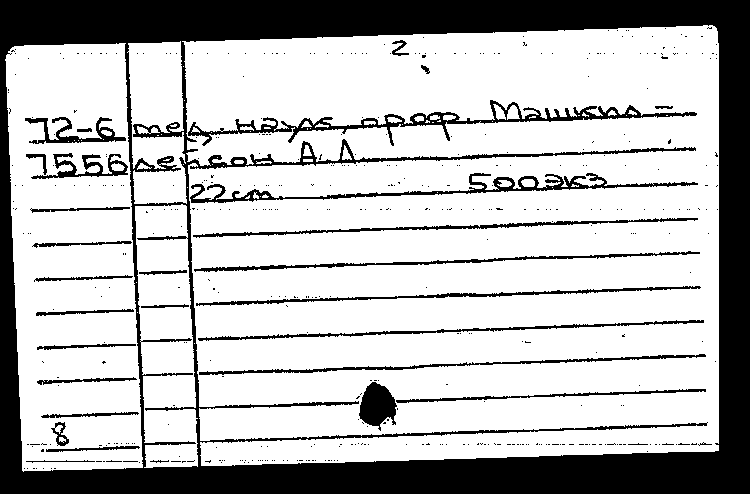 2.
72-6 мед. наук, проф. Машкил-
7556 лейсон А.Л
22 cm. 500 экз
8